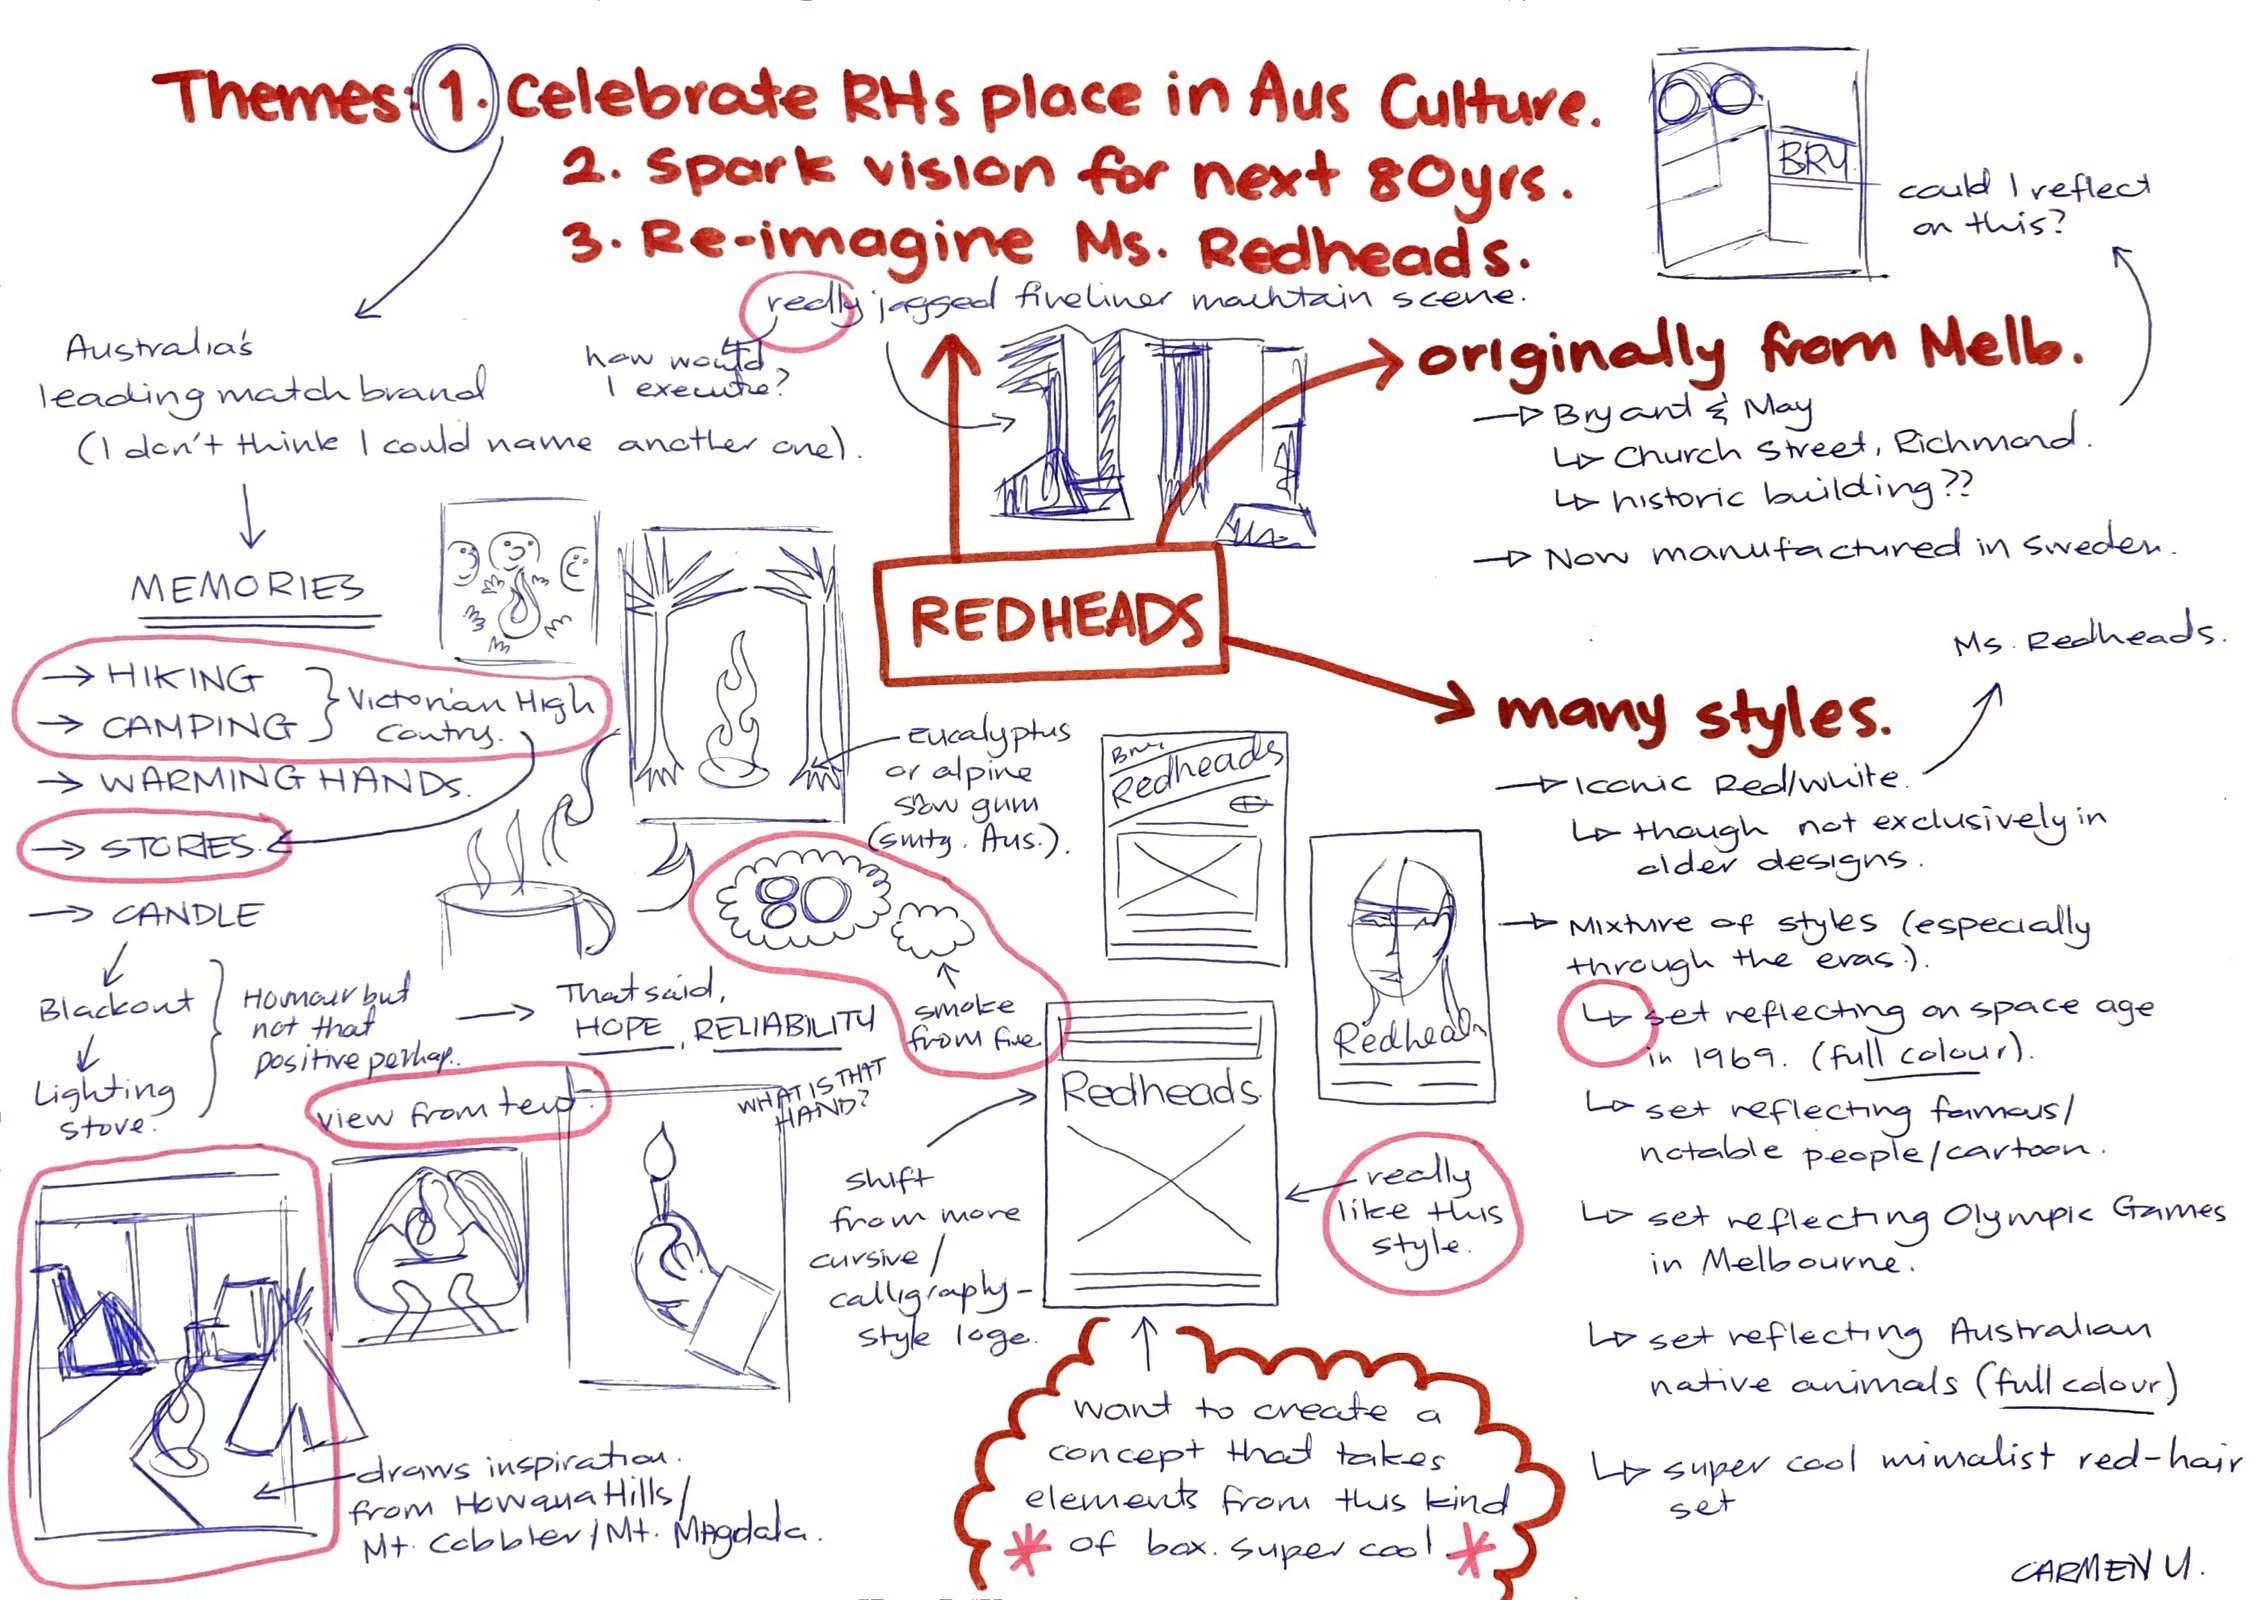 Themes: 1. Celebrate RHs place in Aus Culture.
2. Spark vision for next 80yrs.
3. Re-imagine Ms. Redheads.
BRY
could I reflect
on this?
really jagged fineliner mountain scene.
how would
I execute?
Australia's
leading match brand
(I don't think I could name another one).
MEMORIES
→ HIKING
→ CAMPING
Victorian High
Country.
→ WARMING HANDS.
→ STORIES.
→ CANDLE
Blackout
Lighting
stove.
Honour but
not that
positive perhap.
→ That said,
HOPE, RELIABILITY
originally from Melb.
→ Bryant & May
↳ Church Street, Richmond.
↳ historic building??
→ Now manufactured in Sweden.
REDHEADS
Ms. Redheads.
many styles.
→ Iconic Red/white.
↳ though not exclusively in
older designs.
→ Mixture of styles (especially
through the eras).
↳ set reflecting on space age
in 1969. (full colour).
↳ set reflecting famous/
notable people/cartoon.
↳ set reflecting Olympic Games
in Melbourne.
↳ set reflecting Australian
native animals (full colour)
↳ super cool minimalist red-hair
set
eucalyptus
or alpine
snow gum
(smtg. Aus.).
80
smoke
from fire
Redheads
Redheads
Redheads
WHAT IS THAT
HAND?
view from tent.
shift
from more
cursive/
calligraphy-
style logo.
really
like this
style.
draws inspiration
from Howqua Hills/
Mt. Cobbler/Mt. Magdala.
want to create a
concept that takes
elements from this kind
* of box. super cool *
CARMEN U.